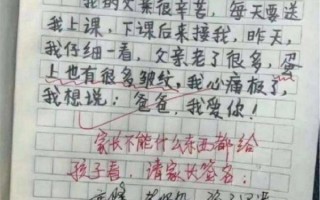 我的父亲很辛苦，每天要送
我上课，下课后来接我，昨天，
我仔细一看，父亲老了很多，蛋
上也有很多皱纹，我心痛极了，
我想说：爸爸，我爱你！
家长不能什么东西都给
孩子看，请家长签名：